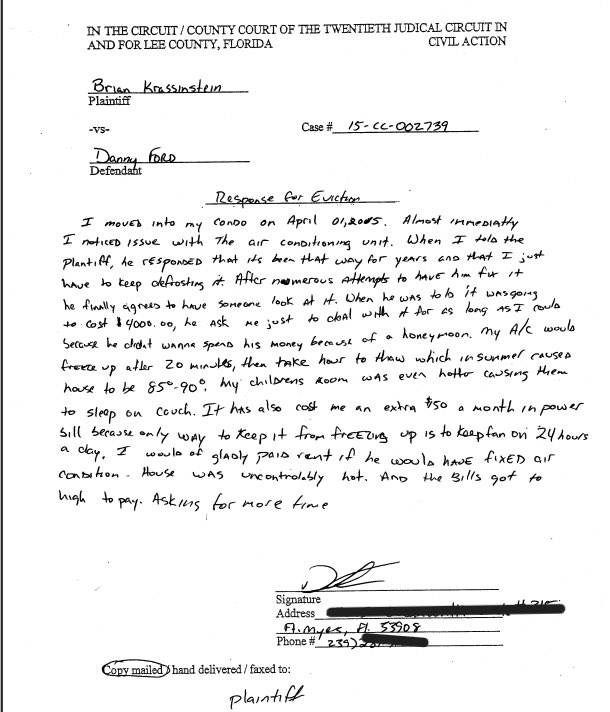 IN THE CIRCUIT / COUNTY COURT OF THE TWENTIETH JUDICIAL CIRCUIT IN
AND FOR LEE COUNTY, FLORIDA CIVIL ACTION
Brian Krassinstein
Plaintiff
-vs- Case # 15-CC-002739
Danny Ford
Defendant
Response for Eviction
I moved into my condo on April 01, 2015. Almost immediatly
I noticed issue with The air conditioning unit. When I told the
Plantiff, he responded that its been that way for years and that I just
have to keep defrosting it. After numerous attempts to have him fix it
he finally agrees to have someone look at it. When he was told it was going
to cost $4000.00, he ask me just to deal with it for as long as I could
because he didnt wanna spend his money because of a honeymoon. My A/C would
freeze up after 20 minutes, then take hour to thaw which in summer caused
house to be 85°-90°. My childrens room was even hotter causing them
to sleep on couch. It has also cost me an extra $50 a month in power
bill because only way to keep it from freezing up is to keep fan on 24 hours
a day. I would of gladly paid rent if he would have fixed air
condition. House was uncontrolably hot. And the Bills got to
high to pay. Asking for more time
Signature
Address
Ft. Myes, Fl. 33908
Phone # 239)
Copy mailed / hand delivered / faxed to:
plaintiff